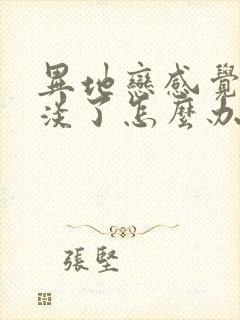 異地戀感覺
淡了怎麼辦
張堅